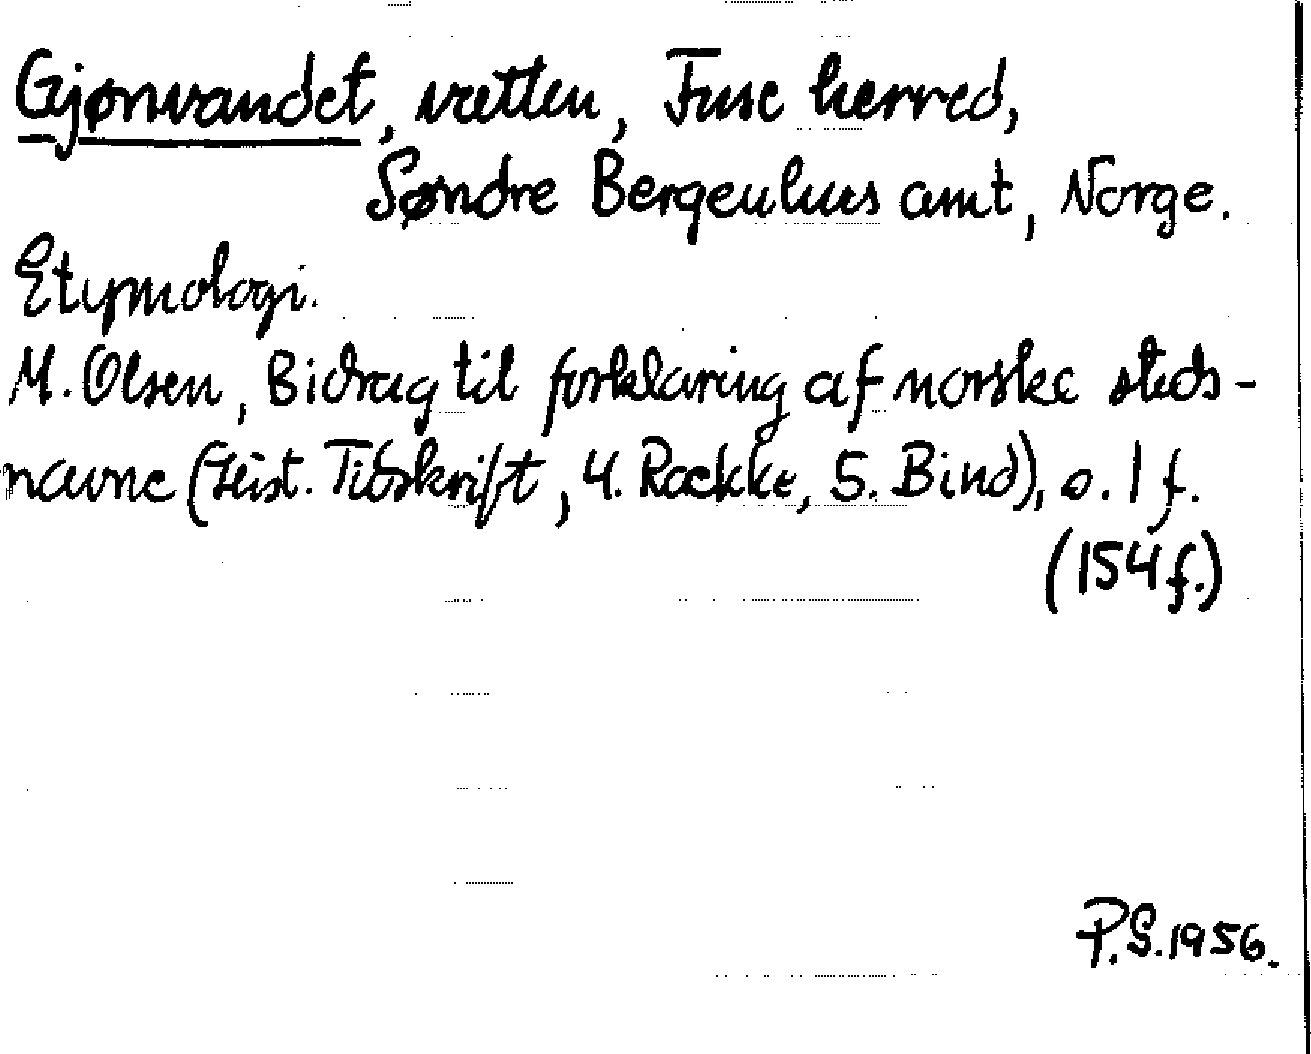 Gjønvandet, vatten, Fuse herred,
Søndre Bergenhus amt, Norge.
Etymologi.
M. Olsen, Bidrag til forklaring af norske steds-
navne (Hist. Tidskrift, 4. Række, 5. Bind), s. 1 f.
(154 f.)
P.S. 1956.